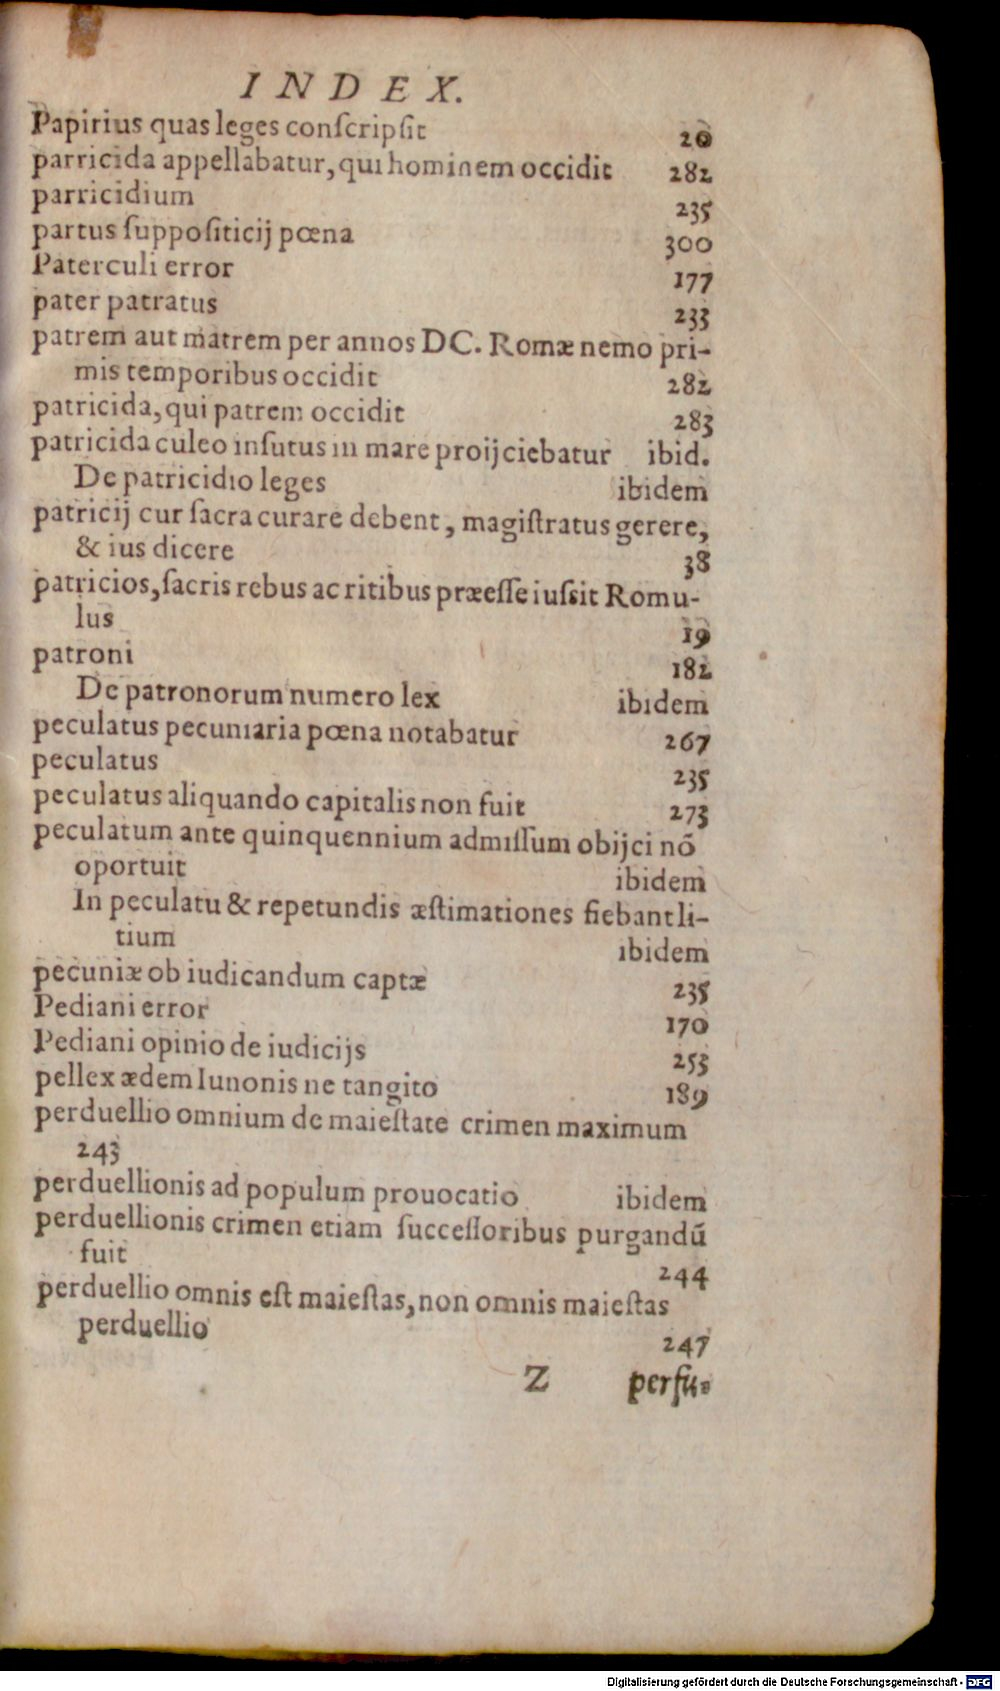 INDEX.
Papirius quas leges conſcripſit 20
parricida appellabatur, qui hominem occidit 282
parricidium 235
partus ſuppoſiticij pœna 300
Paterculi error 177
pater patratus 233
patrem aut matrem per annos DC. Romæ nemo pri-
mis temporibus occidit 282
patricida, qui patrem occidit 283
patricida culeo inſutus in mare proijciebatur ibid.
De patricidio leges ibidem
patricij cur ſacra curare debent, magiſtratus gerere,
& ius dicere 38
patricios, ſacris rebus ac ritibus præeſſe iuſsit Romu-
lus 19
patroni 182
De patronorum numero lex ibidem
peculatus pecuniaria pœna notabatur 267
peculatus 235
peculatus aliquando capitalis non fuit 273
peculatum ante quinquennium admiſſum obijci nō
oportuit ibidem
In peculatu & repetundis æſtimationes fiebant li-
tium ibidem
pecuniæ ob iudicandum captæ 235
Pediani error 170
Pediani opinio de iudicijs 253
pellex ædem Iunonis ne tangito 189
perduellio omnium de maieſtate crimen maximum
243
perduellionis ad populum prouocatio ibidem
perduellionis crimen etiam ſucceſſoribus purgandū
fuit 244
perduellio omnis eſt maieſtas, non omnis maieſtas
perduellio 247
Z perſu-
Digitalisierung gefördert durch die Deutsche Forschungsgemeinschaft - DFG